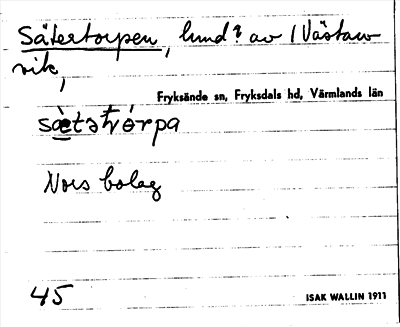 Sätertorpen, lund? av 1 Västan
vik,
Fryksände sn, Fryksdals hd, Värmlands län
sæ̀tətòrpa
Nors bolag
45 ISAK WALLIN 1911